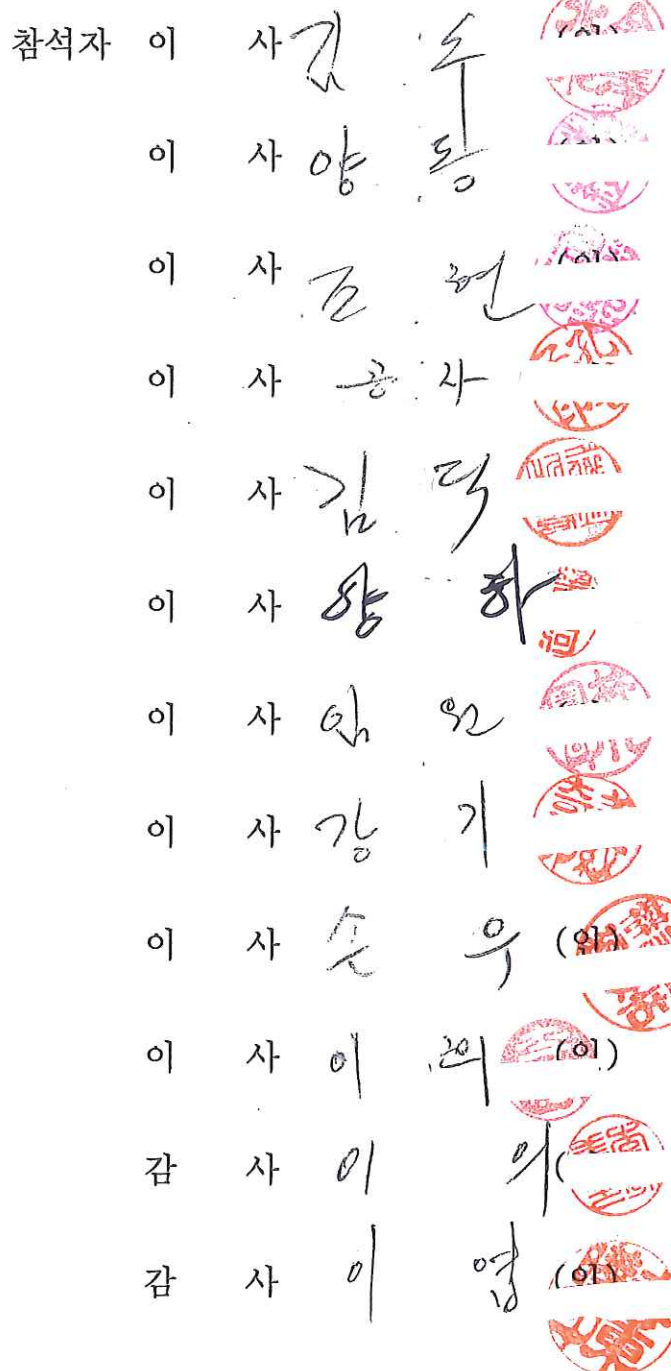 참석자 이 사 김 수 (인)
이 사 양 동 (인)
이 사 조 현 (인)
이 사 공 사
이 사 김 덕
이 사 양 하
이 사 임 원
이 사 강 기
이 사 손 우 (인)
이 사 이 희 (인)
감 사 이 의 (
감 사 이 엽 (인)